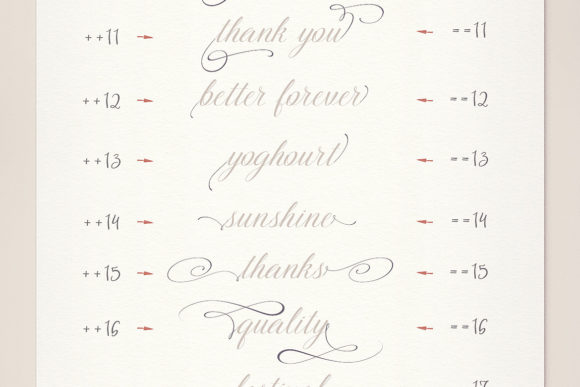 ++11 thank you ==11
++12 better forever ==12
++13 yoghourt ==13
++14 sunshine ==14
++15 thanks ==15
++16 quality ==16